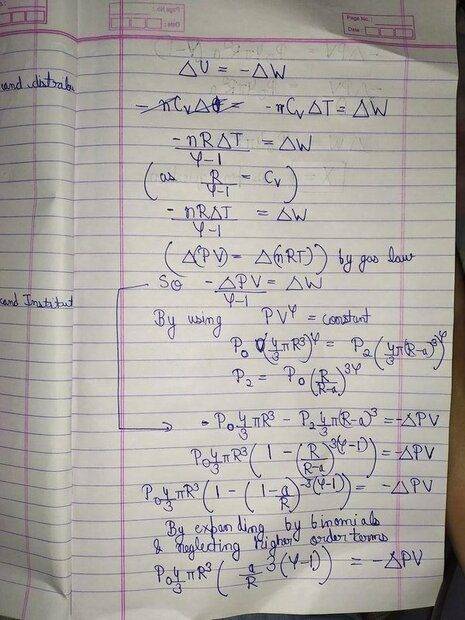 Page No.
Date
Page No.
Date
ΔU = -ΔW
- nCvΔT = - nCvΔT = ΔW
- nRΔT / γ-1 = ΔW
( as R / γ-1 = Cv )
- nRΔT / γ-1 = ΔW
( Δ(PV) = Δ(nRT) ) by gas law
So - ΔPV / γ-1 = ΔW
By using PV^γ = constant
P₀ (4/3 πR³)^γ = P₂ (4/3 π(R-a)³)^γ
P₂ = P₀ (R / R-a)^3γ
- P₀ 4/3 πR³ - P₂ 4/3 π(R-a)³ = -ΔPV
P₀ 4/3 πR³ ( 1 - (R / R-a)^3(γ-1) ) = -ΔPV
P₀ 4/3 πR³ ( 1 - (1 - a/R)^-3(γ-1) ) = -ΔPV
By expanding by binomials
& neglecting higher order terms
P₀ 4/3 πR³ ( a/R 3(γ-1) ) = -ΔPV
and Institut